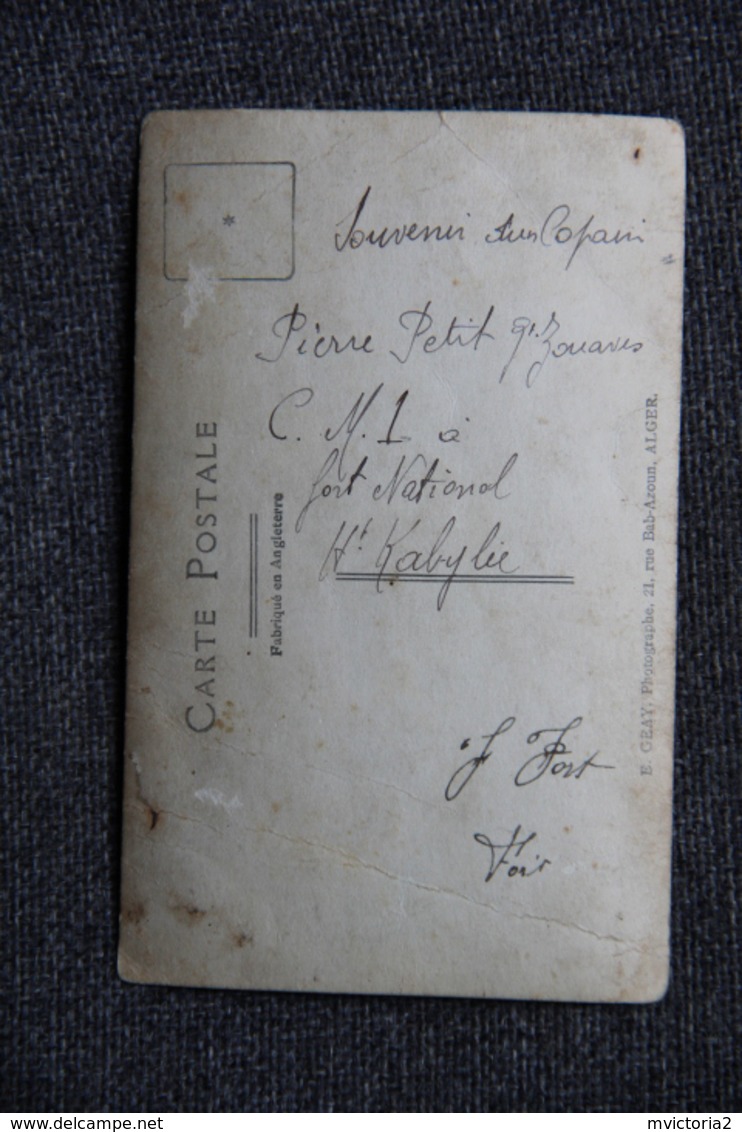 Souvenir d'un Copain
Pierre Petit 9e Zouaves
C. M. 1 à
fort National
Ht Kabylie
F Fort
CARTE POSTALE
Fabriqué en Angleterre
E. GEAY, Photographe, 21, rue Bab-Azoun, ALGER.
*
delcampe.net
mvictoria2